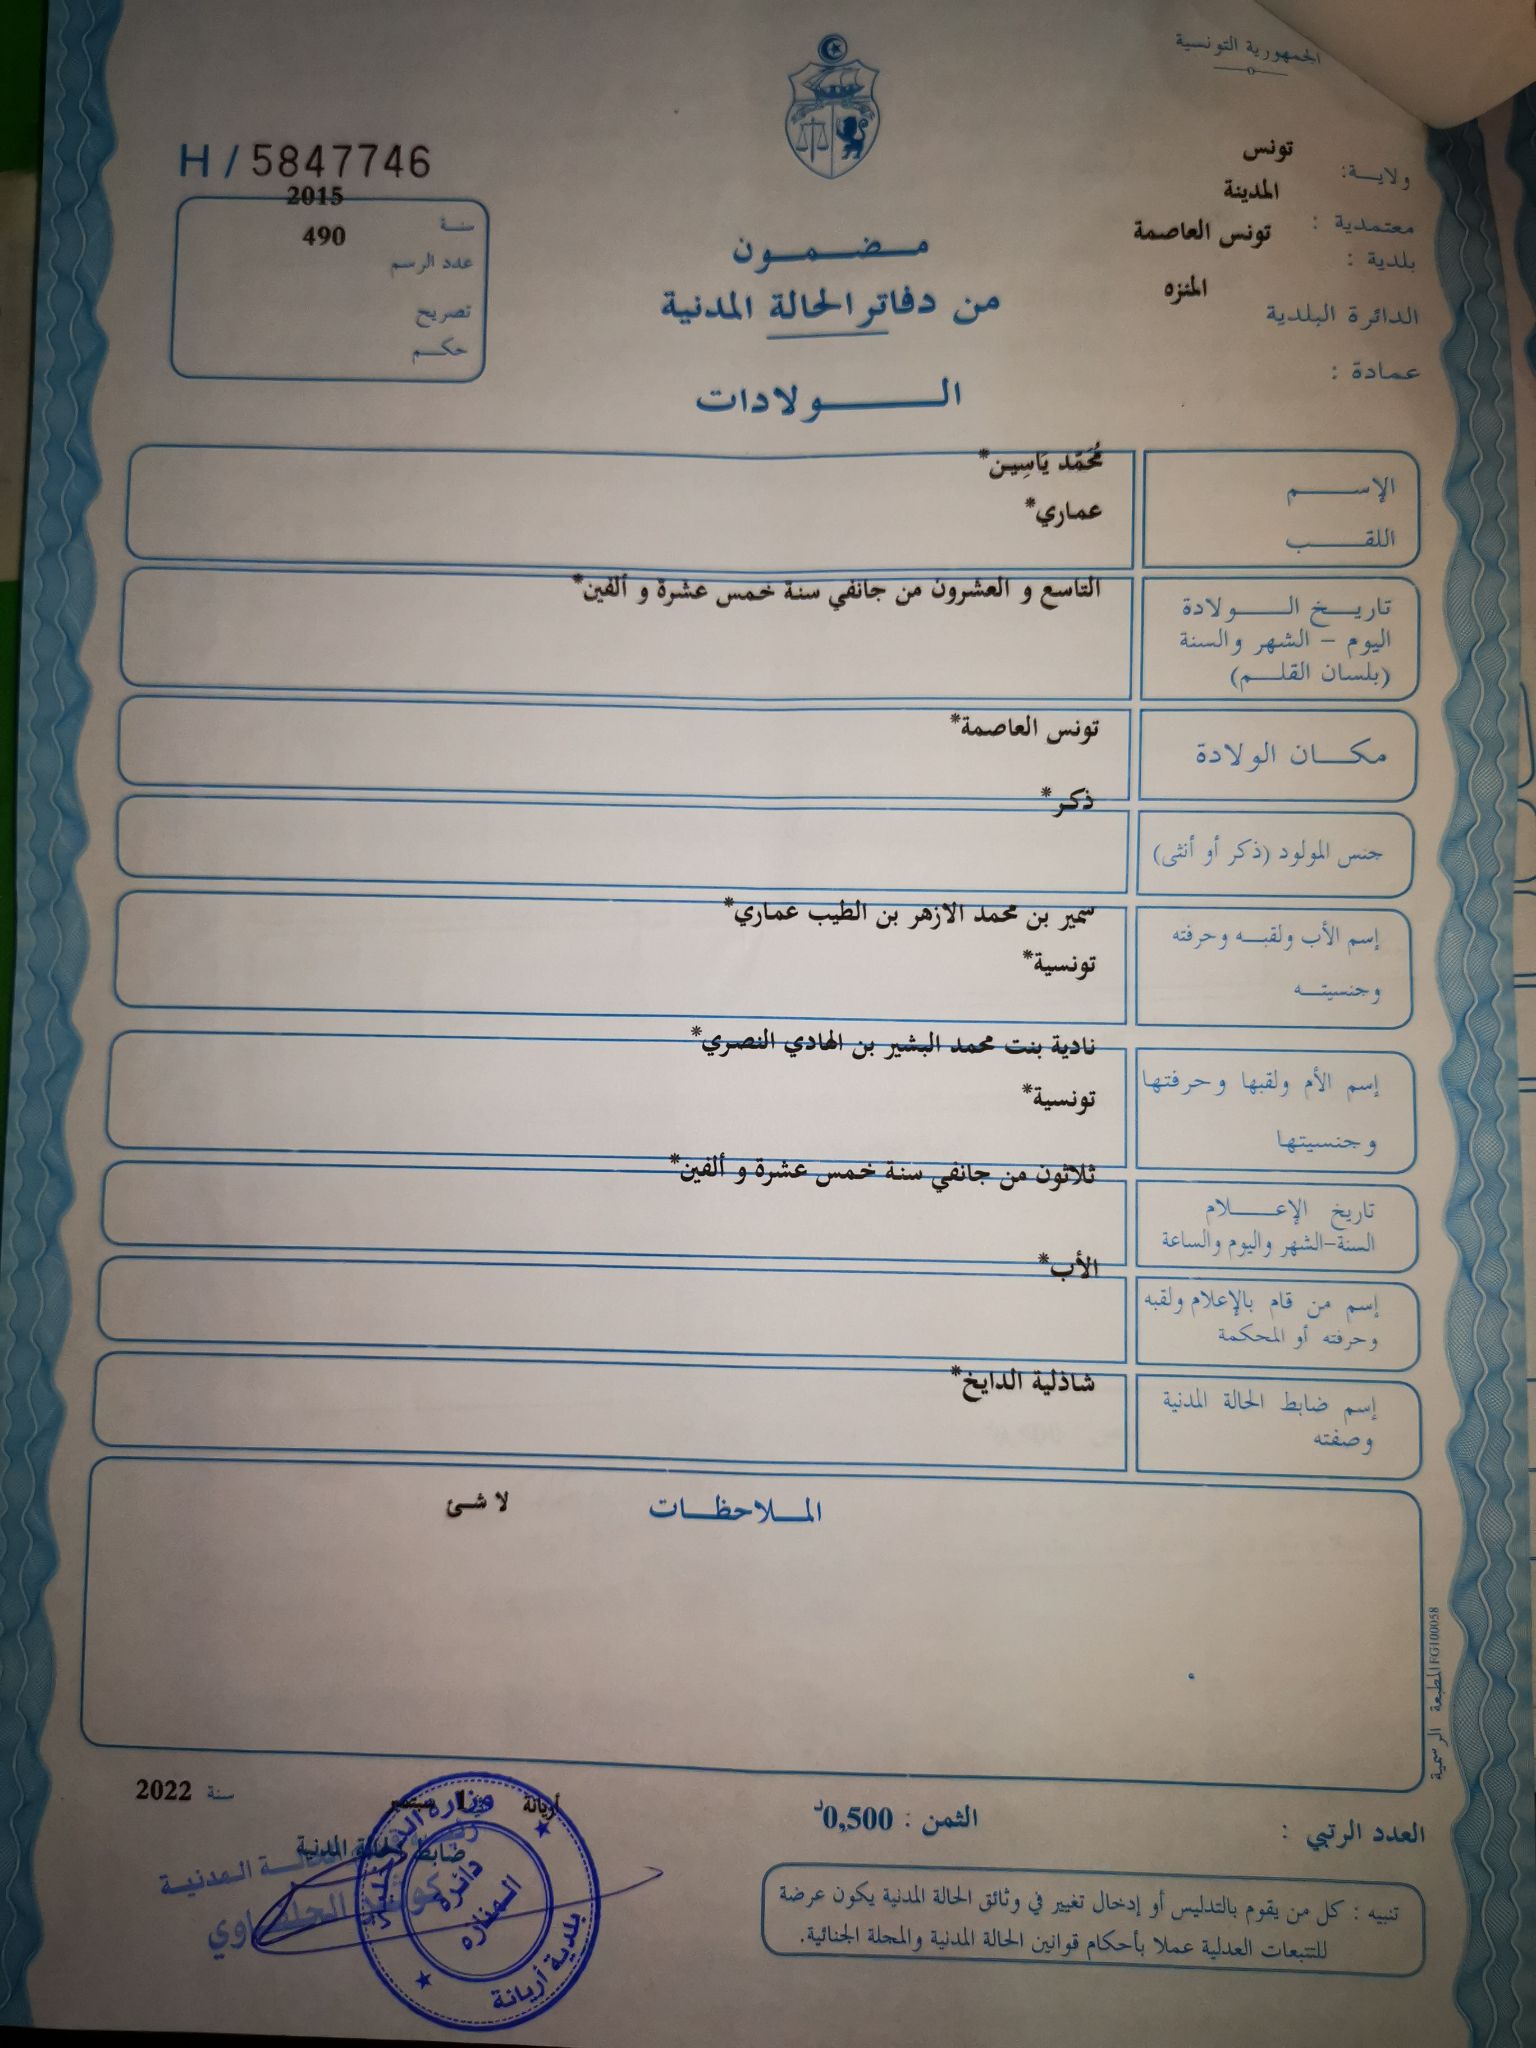 الجمهورية التونسية
ولاية: تونس
معتمدية : المدينة
بلدية : تونس العاصمة
الدائرة البلدية المنزه
عمادة :
H / 5847746
سنة 2015
عدد الرسم 490
تصريح
حكم
مضمون
من دفاتر الحالة المدنية
الولادات
الإسم مُحَمَّد يَاسِين*
اللقب عماري*
تاريخ الولادة التاسع و العشرون من جانفي سنة خمس عشرة و ألفين*
اليوم - الشهر والسنة
(بلسان القلم)
مكان الولادة تونس العاصمة*
جنس المولود (ذكر أو أنثى) ذكر*
إسم الأب ولقبه وحرفته سمير بن محمد الازهر بن الطيب عماري*
وجنسيته تونسية*
إسم الأم ولقبها وحرفتها نادية بنت محمد البشير بن الهادي النصري*
وجنسيتها تونسية*
تاريخ الإعلام ثلاثون من جانفي سنة خمس عشرة و ألفين*
السنة-الشهر واليوم والساعة
إسم من قام بالإعلام ولقبه الأب*
وحرفته أو المحكمة
إسم ضابط الحالة المدنية شاذلية الدايخ*
وصفته
الملاحظات لا شئ
المطبعة الرسمية FG100058
العدد الرتبي :
الثمن : 0,500د
أريانة في 1 سبتمبر سنة 2022
ضابط الحالة المدنية
الحالة المدنية
وزارة الداخلية
دائرة
المنارة
بلدية أريانة
تنبيه : كل من يقوم بالتدليس أو إدخال تغيير في وثائق الحالة المدنية يكون عرضة
للتتبعات العدلية عملا بأحكام قوانين الحالة المدنية والمجلة الجنائية.